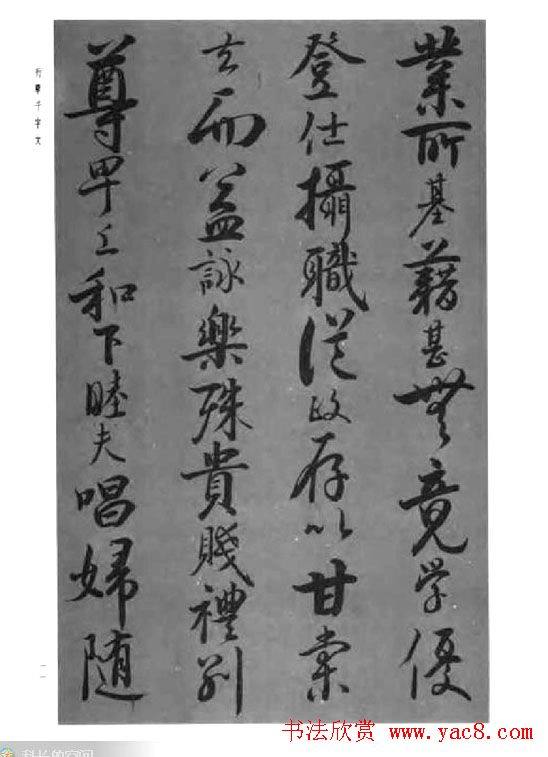 業所基籍甚無竟学優
登仕攝職従政存以甘棠
去而益詠樂殊貴賤禮別
尊卑上和下睦夫唱婦随
行書千字文
一一
书法欣赏 www.yac8.com
科长的空间